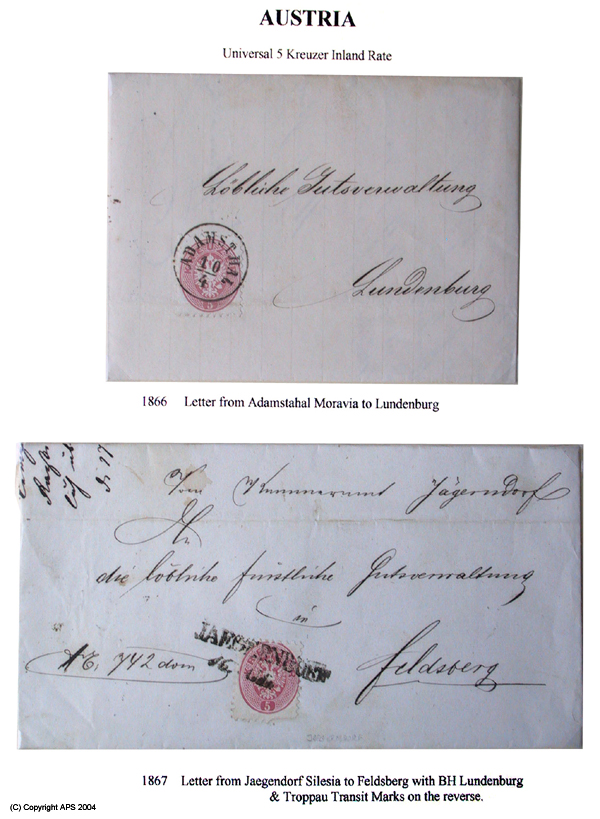 AUSTRIA
Universal 5 Kreuzer Inland Rate
Löbliche Gutsverwaltung
ADAMSTHAL
10/4
5
Lundenburg
1866 Letter from Adamstahal Moravia to Lundenburg
Vom Jägerndorf
An
die löbliche fürstliche Gutsverwaltung
in
742 dom
5
Feldsberg
1867 Letter from Jaegendorf Silesia to Feldsberg with BH Lundenburg
& Troppau Transit Marks on the reverse.
(C) Copyright APS 2004